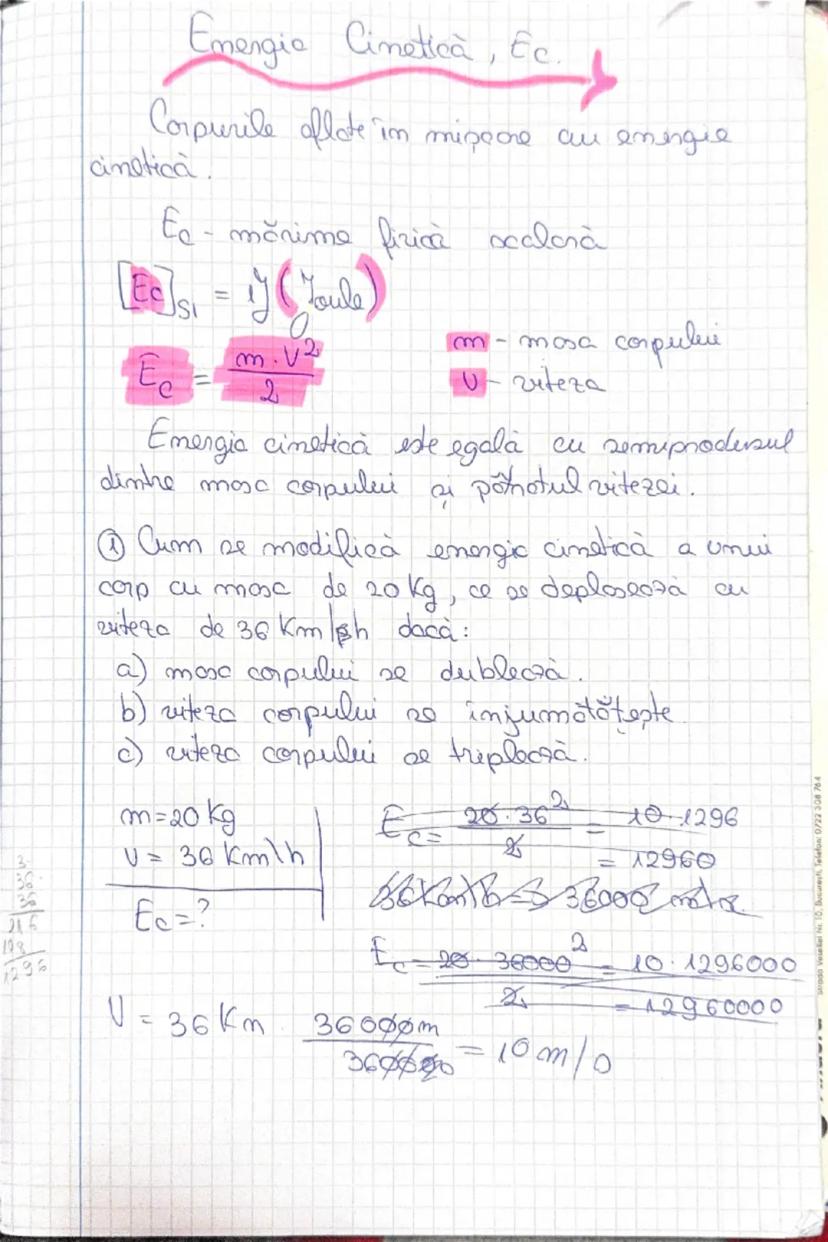 Energia Cinetică, Ec.
Corpurile aflate în mișcare au energie
cinetică.
Ec - mărime fizică scalară
[Ec]SI = 1J (Joule)
Ec = m·v²/2
m - masa corpului
v - viteza
Energia cinetică este egală cu semiprodusul
dintre masa corpului și pătratul vitezei.
① Cum se modifică energia cinetică a unui
corp cu masa de 20 Kg, ce se deplasează cu
viteza de 36 Km/h dacă:
a) masa corpului se dublează.
b) viteza corpului se înjumătățește
c) viteza corpului se triplează.
m=20 Kg
v = 36 Km\h
Ec=?
Ec= 20·36²/2 = 10·1296
= 12960
36Km\h = 36000
Ec= 20·36000²/2 = 10·1296000
= 12960000
V = 36 Km 36000m/3600 = 10 m/s
3
36
36
216
108
1296
Strada Veseliei Nr. 10, București, Telefon: 0722 308 764